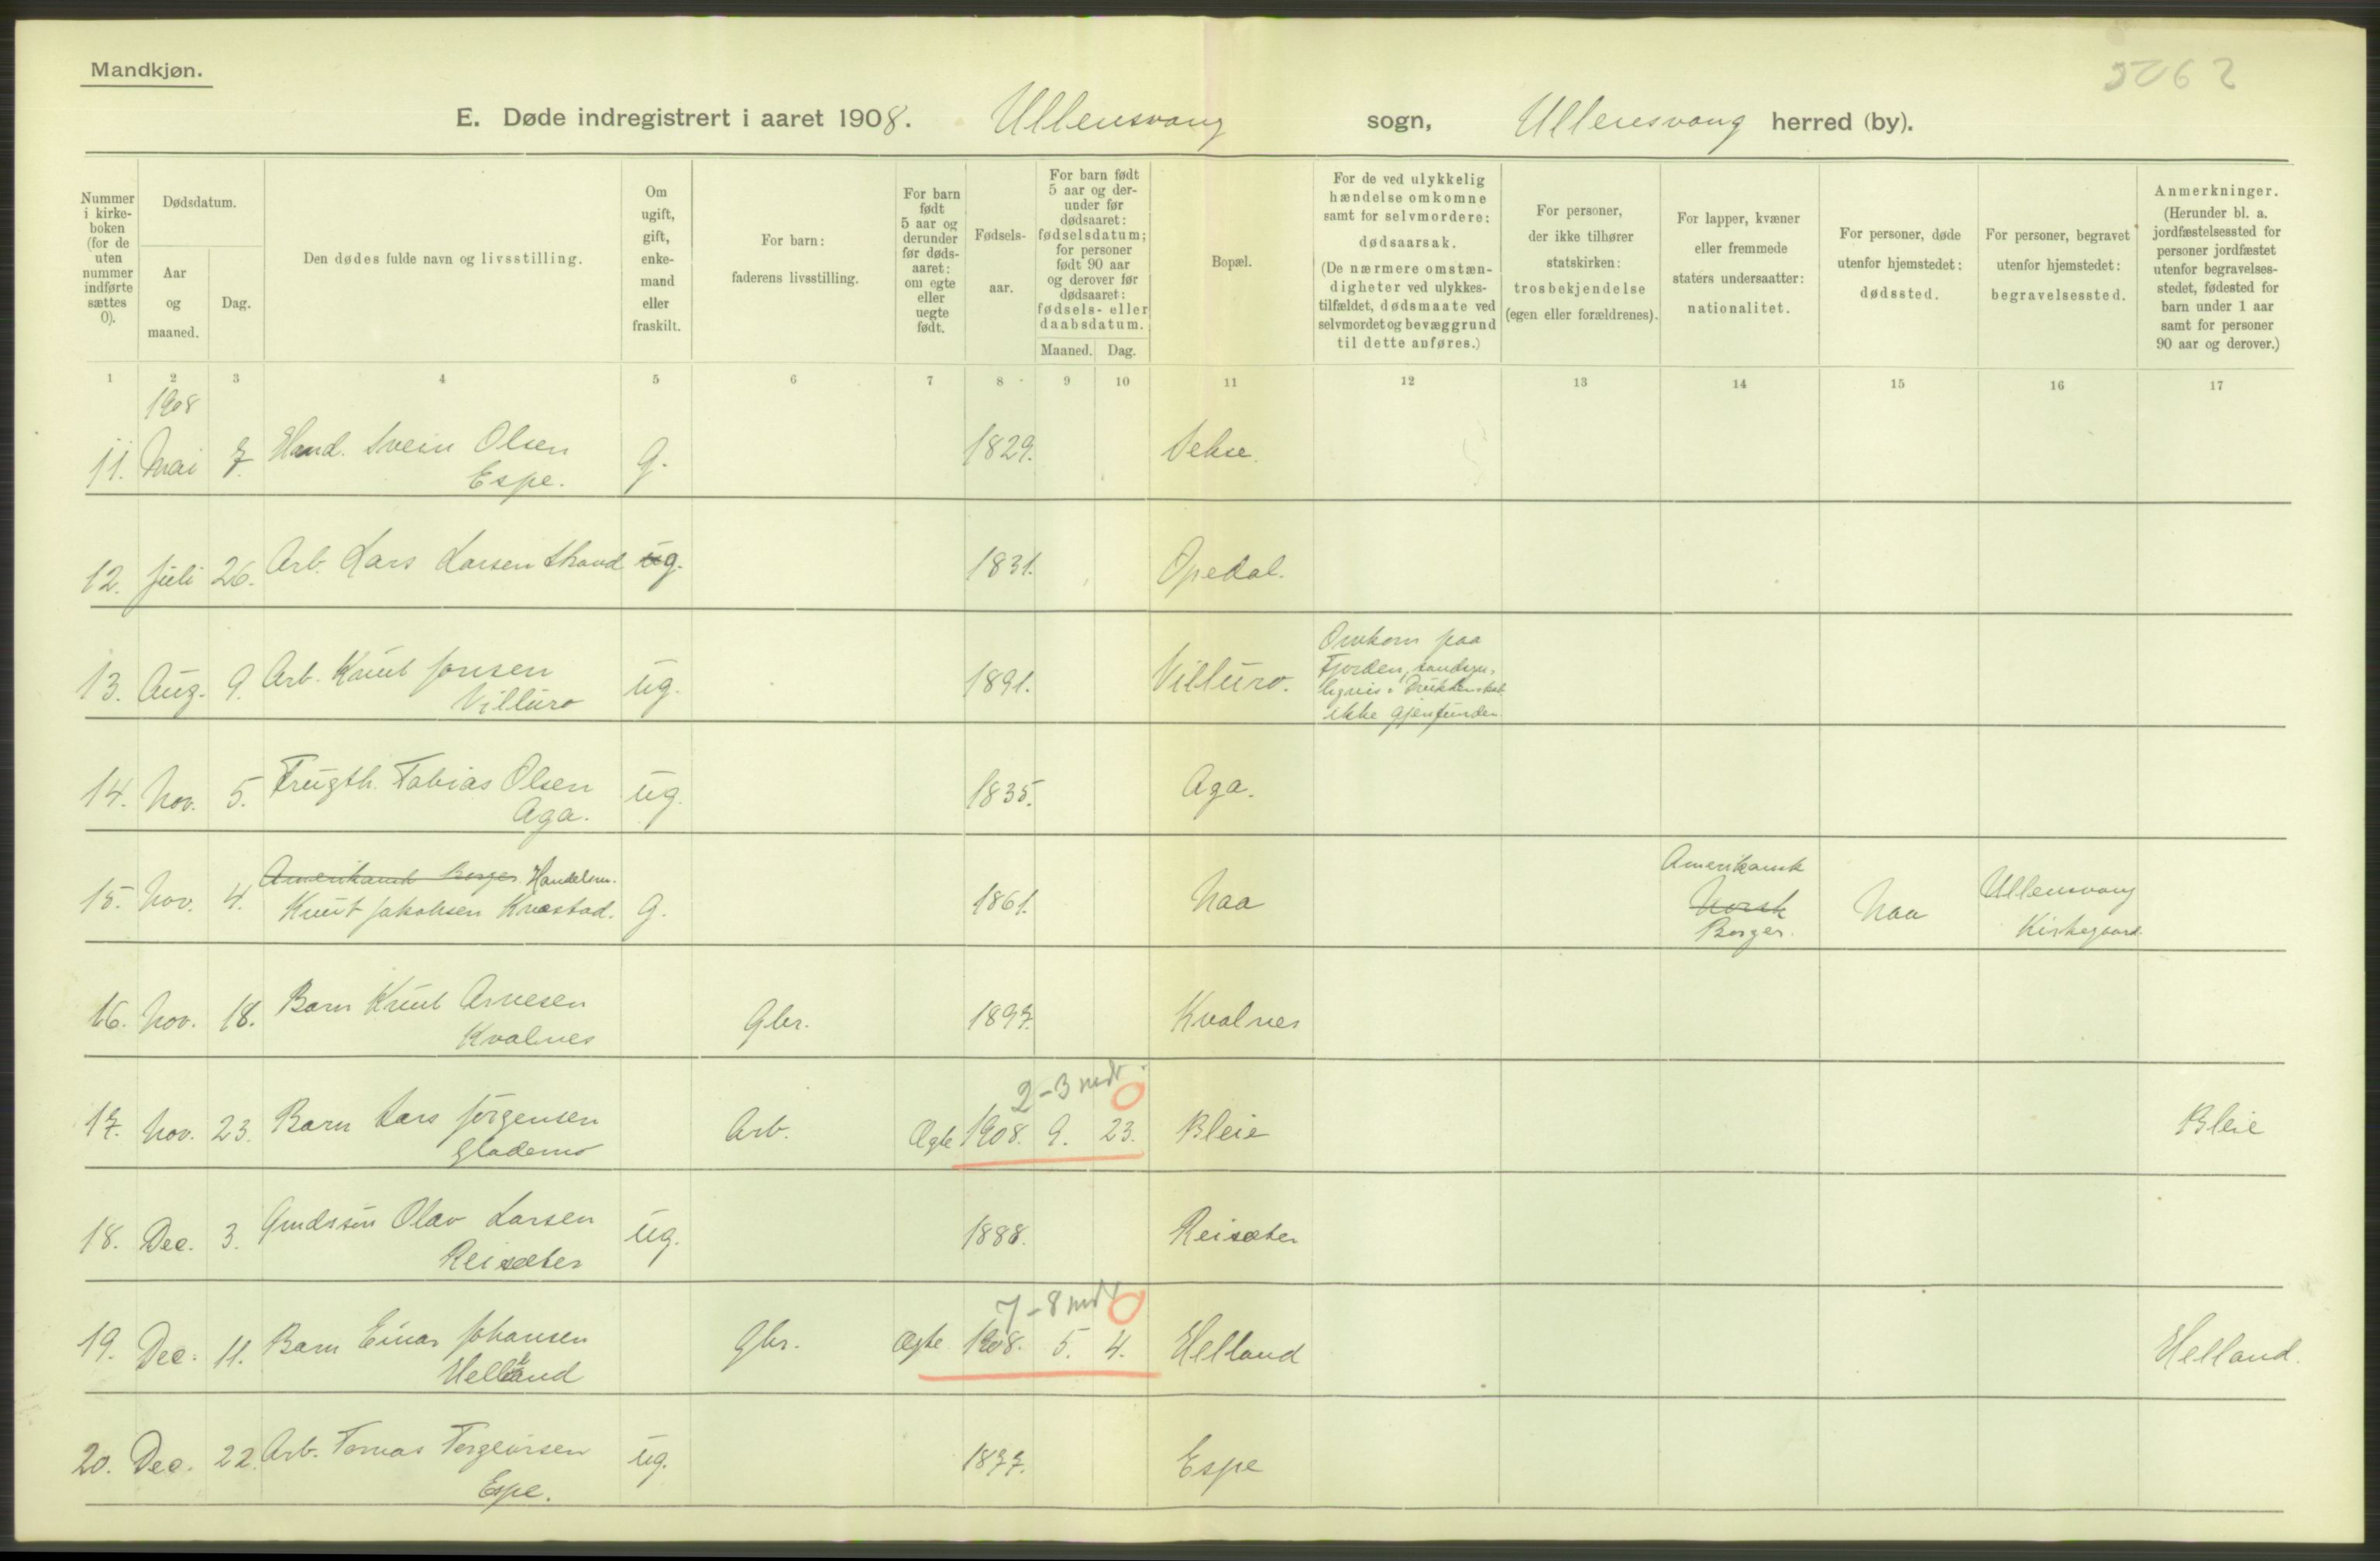 Mandkjøn.
5062
E. Døde indregistrert i aaret 1908. Ullensvang sogn, Ullensvang herred (by).
Nummer i kirke-boken (for de uten nummer indførte sættes 0).
Dødsdatum.
Aar og maaned.
Dag.
Den dødes fulde navn og livsstilling.
Om ugift, gift, enke-mand eller fraskilt.
For barn: faderens livsstilling.
For barn født 5 aar og derunder før døds-aaret: om egte eller uegte født.
Fødsels-aar.
For barn født 5 aar og der-under før dødsaaret: fødselsdatum; for personer født 90 aar og derover før dødsaaret: fødsels- eller daabsdatum.
Maaned. Dag.
Bopæl.
For de ved ulykkelig hændelse omkomne samt for selvmordere: dødsaarsak. (De nærmere omstæn-digheter ved ulykkes-tilfældet, dødsmaate ved selvmordet og bevæggrund til dette anføres.)
For personer, der ikke tilhører statskirken: trosbekjendelse (egen eller forældrenes).
For lapper, kvæner eller fremmede staters undersaatter: nationalitet.
For personer, døde utenfor hjemstedet: dødssted.
For personer, begravet utenfor hjemstedet: begravelsessted.
Anmerkninger. (Herunder bl. a. jordfæstelsessted for personer jordfæstet utenfor begravelses-stedet, fødested for barn under 1 aar samt for personer 90 aar og derover.)
1 2 3 4 5 6 7 8 9 10 11 12 13 14 15 16 17
1908
11. Mai 7. Hand. Svein Olsen Espe. g. 1829. Sekse.
12. Juli 26. Arb. Lars Larsen Skaud ug. 1831. Opedal.
13. Aug. 9. Arb. Knut Jonsen Villuro ug. 1891. Villuro. Omkom paa
Fjorden, sandsyn-
ligvis i Drukkenskab
ikke gjenfunden
14. Nov. 5. Frugth. Tobias Olsen Aga. ug. 1835. Aga.
15. Nov. 4. Amerikansk Borger Handelsm.
Knut Jakobsen Knastad. g. 1861. Naa Amerikansk
Norsk
Borger. Naa Ullensvang
Kirkegaard.
16. Nov. 18. Barn Knut Arnesen Kvalnes Gbr. 1897. Kvalnes
2-3 mdr.
17. Nov. 23. Barn Lars Jörgensen Glademo Arb. Ægte 1908. 9. 23. Bleie Bleie
18. Dec. 3. Gaardssön Olav Larsen Reisæter ug. 1888. Reisæter
7-8 mdr
19. Dec. 11. Barn Einar Johansen Helland Gbr. Ægte 1908. 5. 4. Helland Helland.
20. Dec. 22. Arb. Tomas Torgeirsen Espe. ug. 1877. Espe